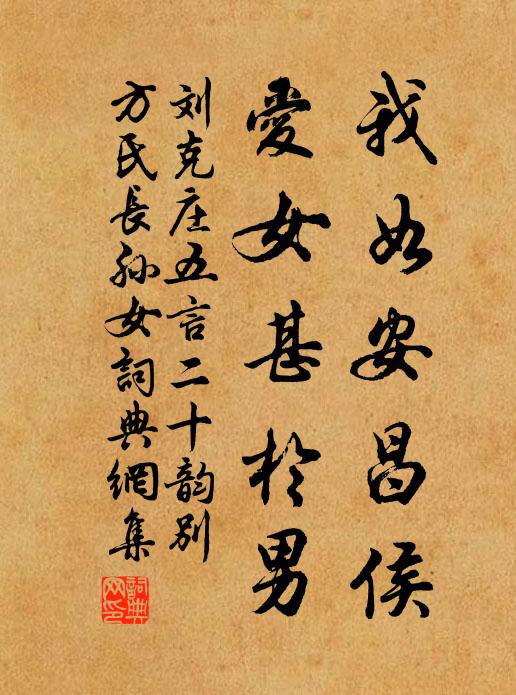 我如安昌侯
愛女甚於男
刘克庄五言二十韵别
方氏長孙女詞典網集
詞典网印